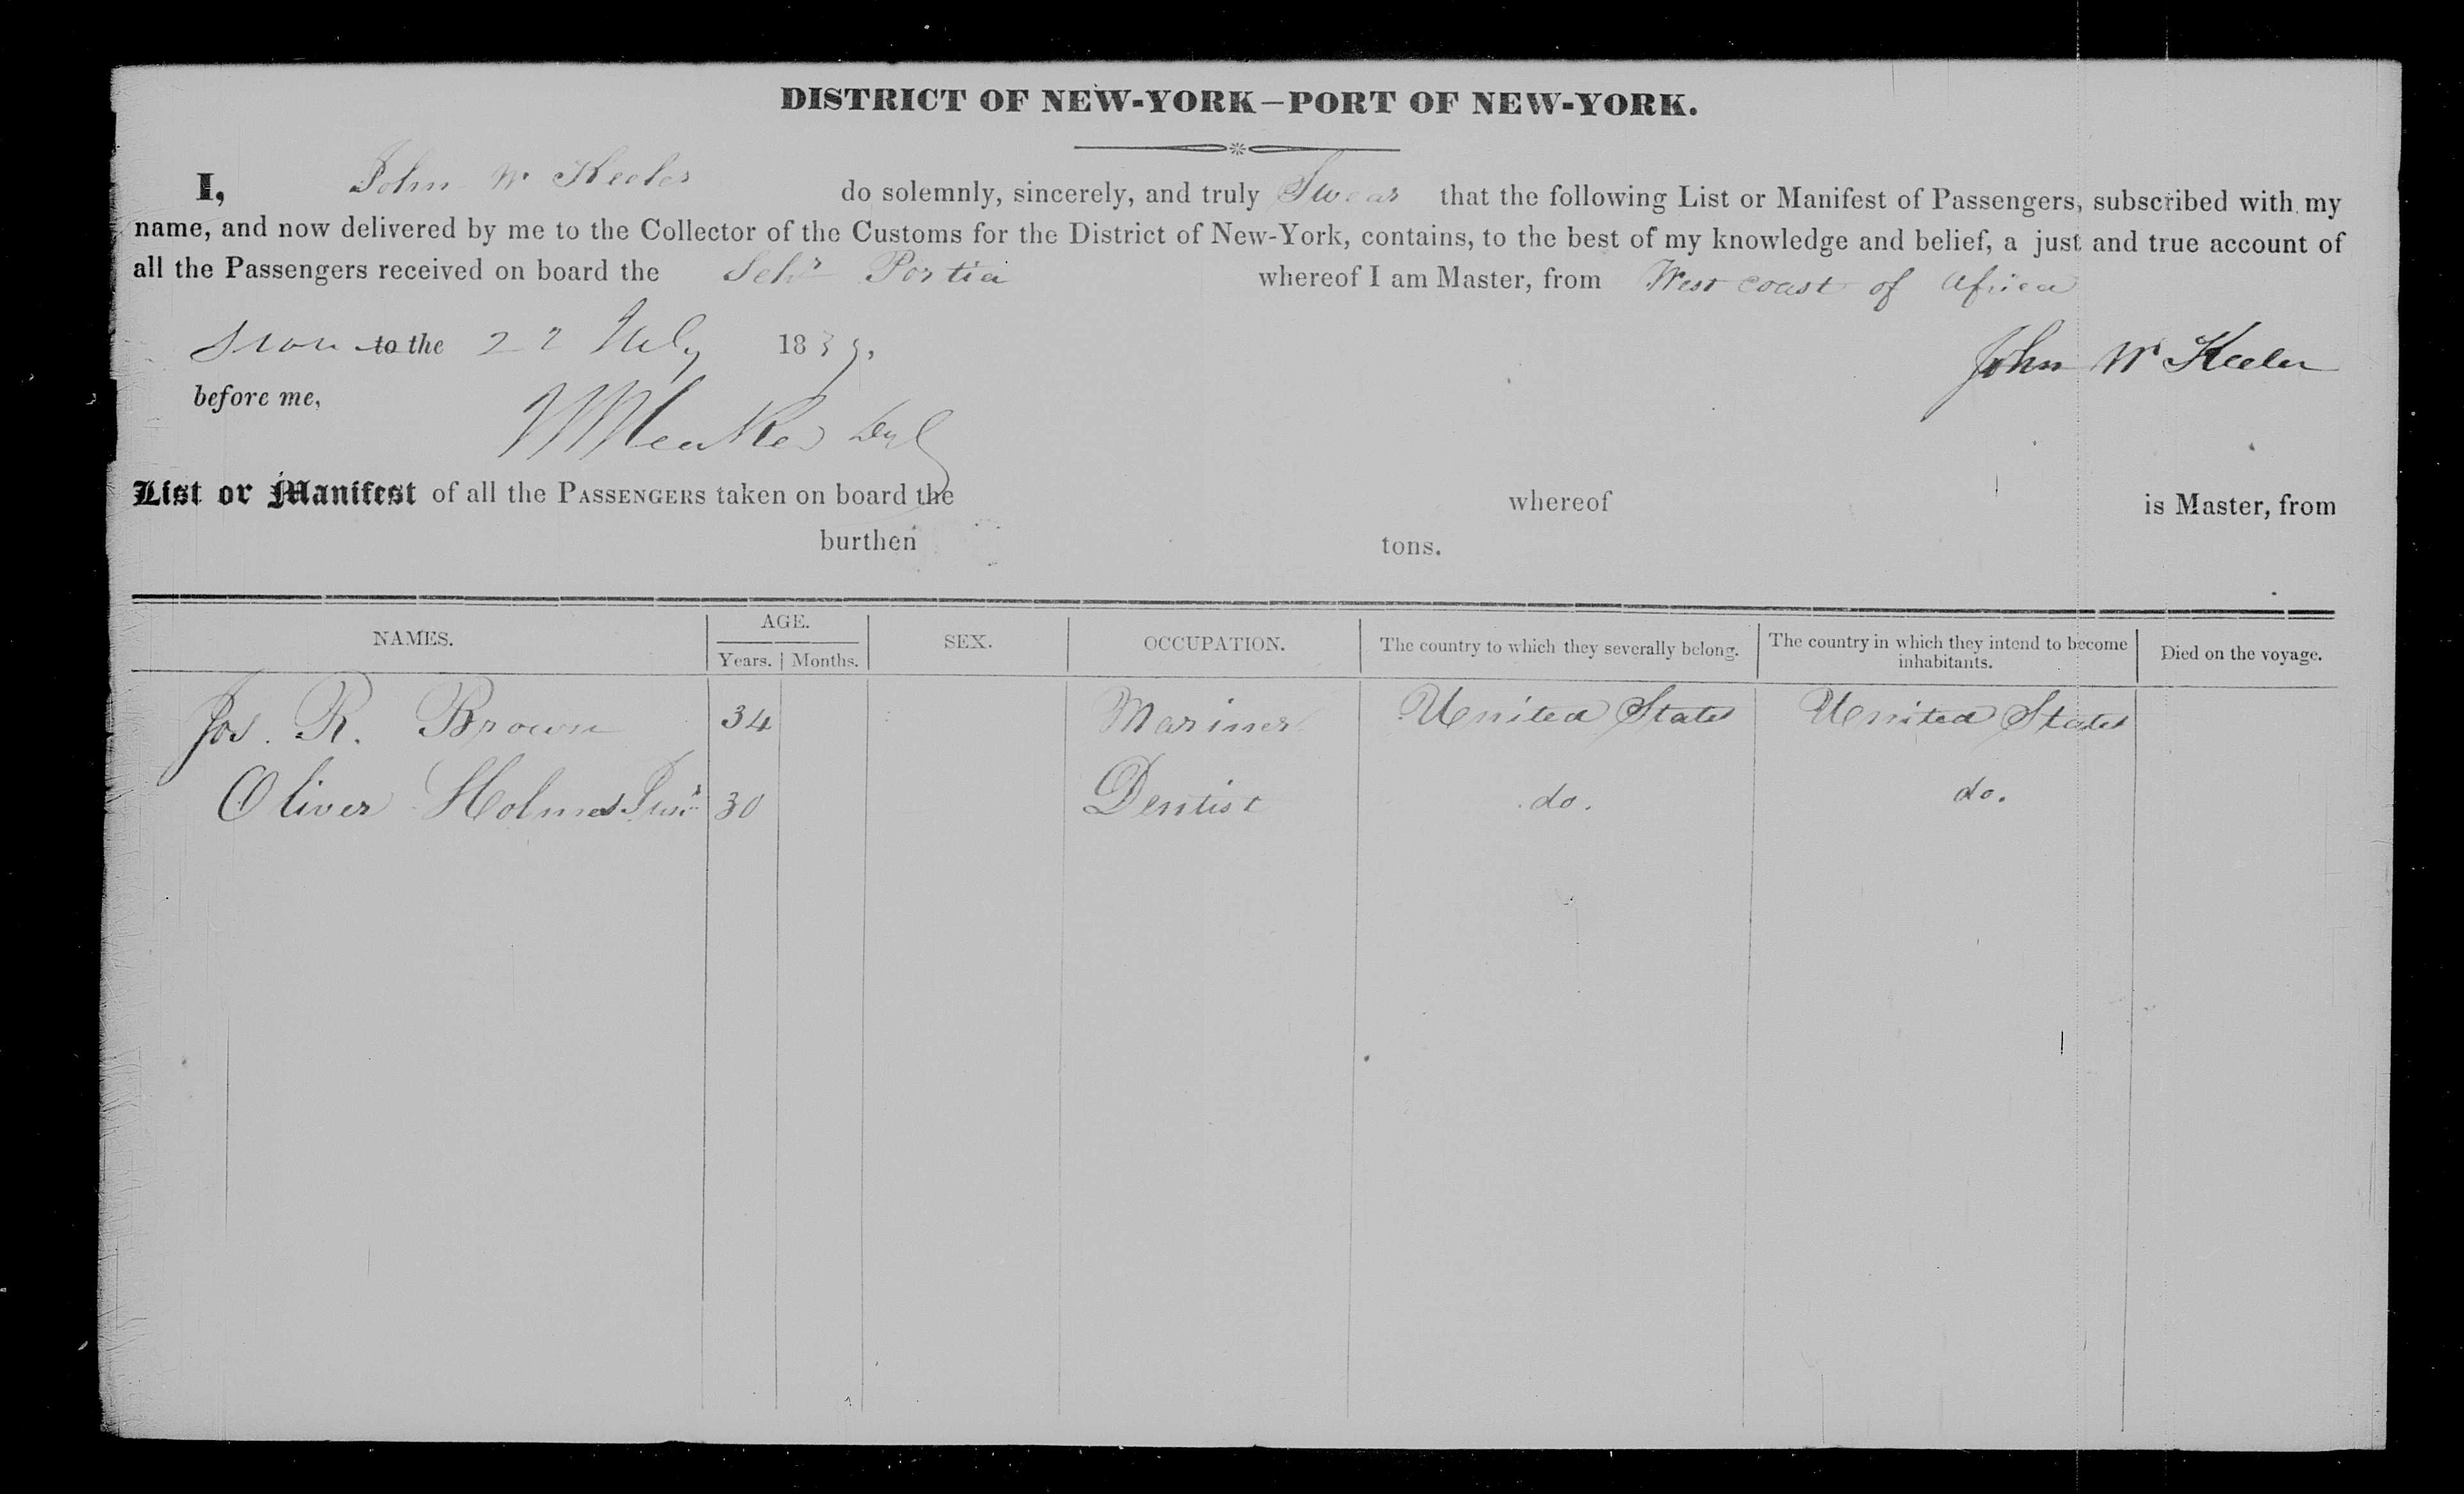 DISTRICT OF NEW-YORK—PORT OF NEW-YORK.
I, John W Keeler do solemnly, sincerely, and truly Swear that the following List or Manifest of Passengers, subscribed with my
name, and now delivered by me to the Collector of the Customs for the District of New-York, contains, to the best of my knowledge and belief, a just and true account of
all the Passengers received on board the Schr Portia whereof I am Master, from West coast of Africa
to the 22 July 1839.
John W Keeler
before me,
List or Manifest of all the PASSENGERS taken on board the whereof is Master, from
burthen tons.
NAMES. AGE. Years. Months. SEX. OCCUPATION. The country to which they severally belong. The country in which they intend to become inhabitants. Died on the voyage.
Jos. R. Brown 34 Mariner United States United States
Oliver Holmes Junr 30 Dentist do. do.